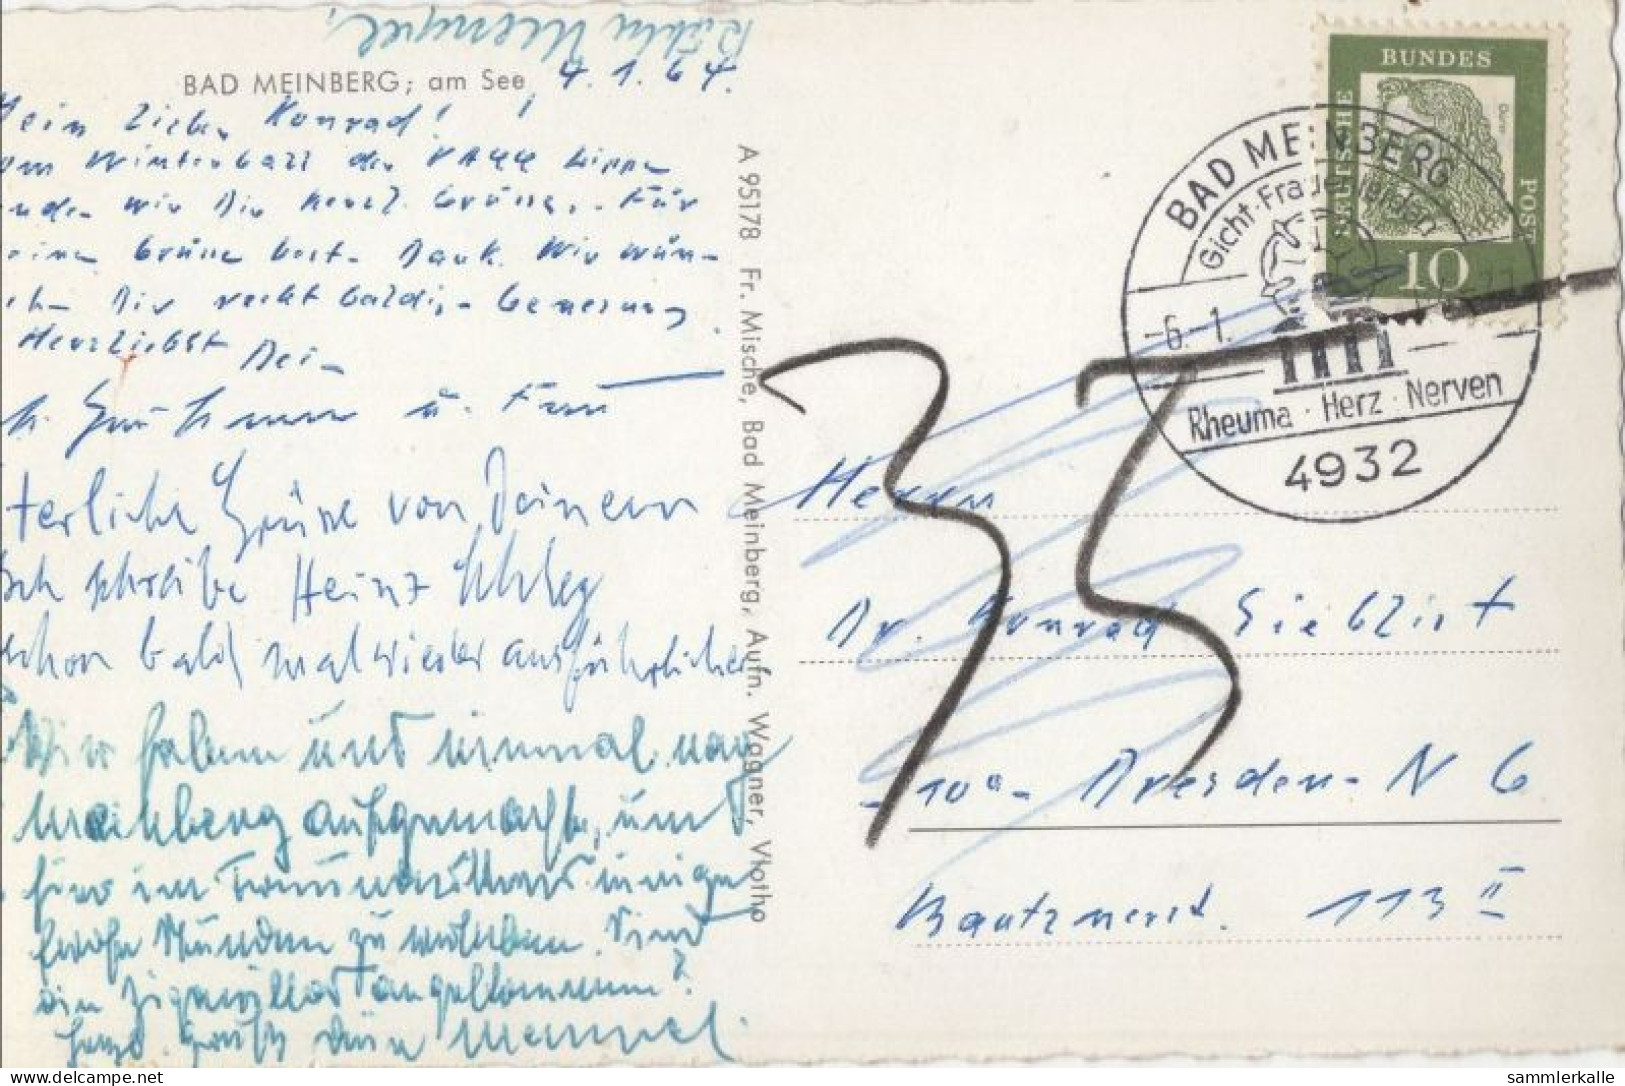 BAD MEINBERG; am See
4.1.64.
Mein lieber Konrad!
Vom Winterball der
wir Dir herzl. Grüsse. Für
Deine Grüsse best. Dank. Wir wün-
Dir recht baldige Genesung.
Herzliebst Dein
u. Frau
Grüsse von Deinem
Ich schreibe Heinz
schon bald mal wieder ausführlicher
Wir haben uns einmal nach
Meinberg aufgemacht, um
hier im einige
frohe Stunden zu erleben. Sind
die Zigarillos angekommen?
Herzl. Gruß Dein Mempel.
A 95178 Fr. Mische, Bad Meinberg, Aufn. Wagner, Vlotho
DEUTSCHE
BUNDES
POST
Dürer
10
BAD MEINBERG
Gicht · Frauenleiden
-6.-1.
Rheuma · Herz · Nerven
4932
35
Herrn
Dr. Konrad Sieblist
-10a- Dresden- N 6
Bautznerst. 113 II
delcampe.net
sammlerkalle